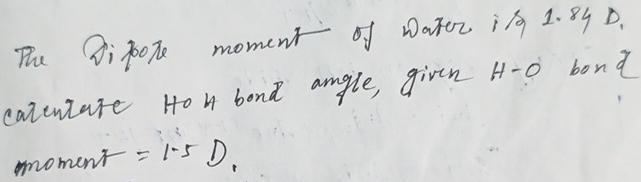 The Dipole moment of Water is 1.84 D.
calculate HOH bond angle, given H-O bond
moment = 1.5 D.